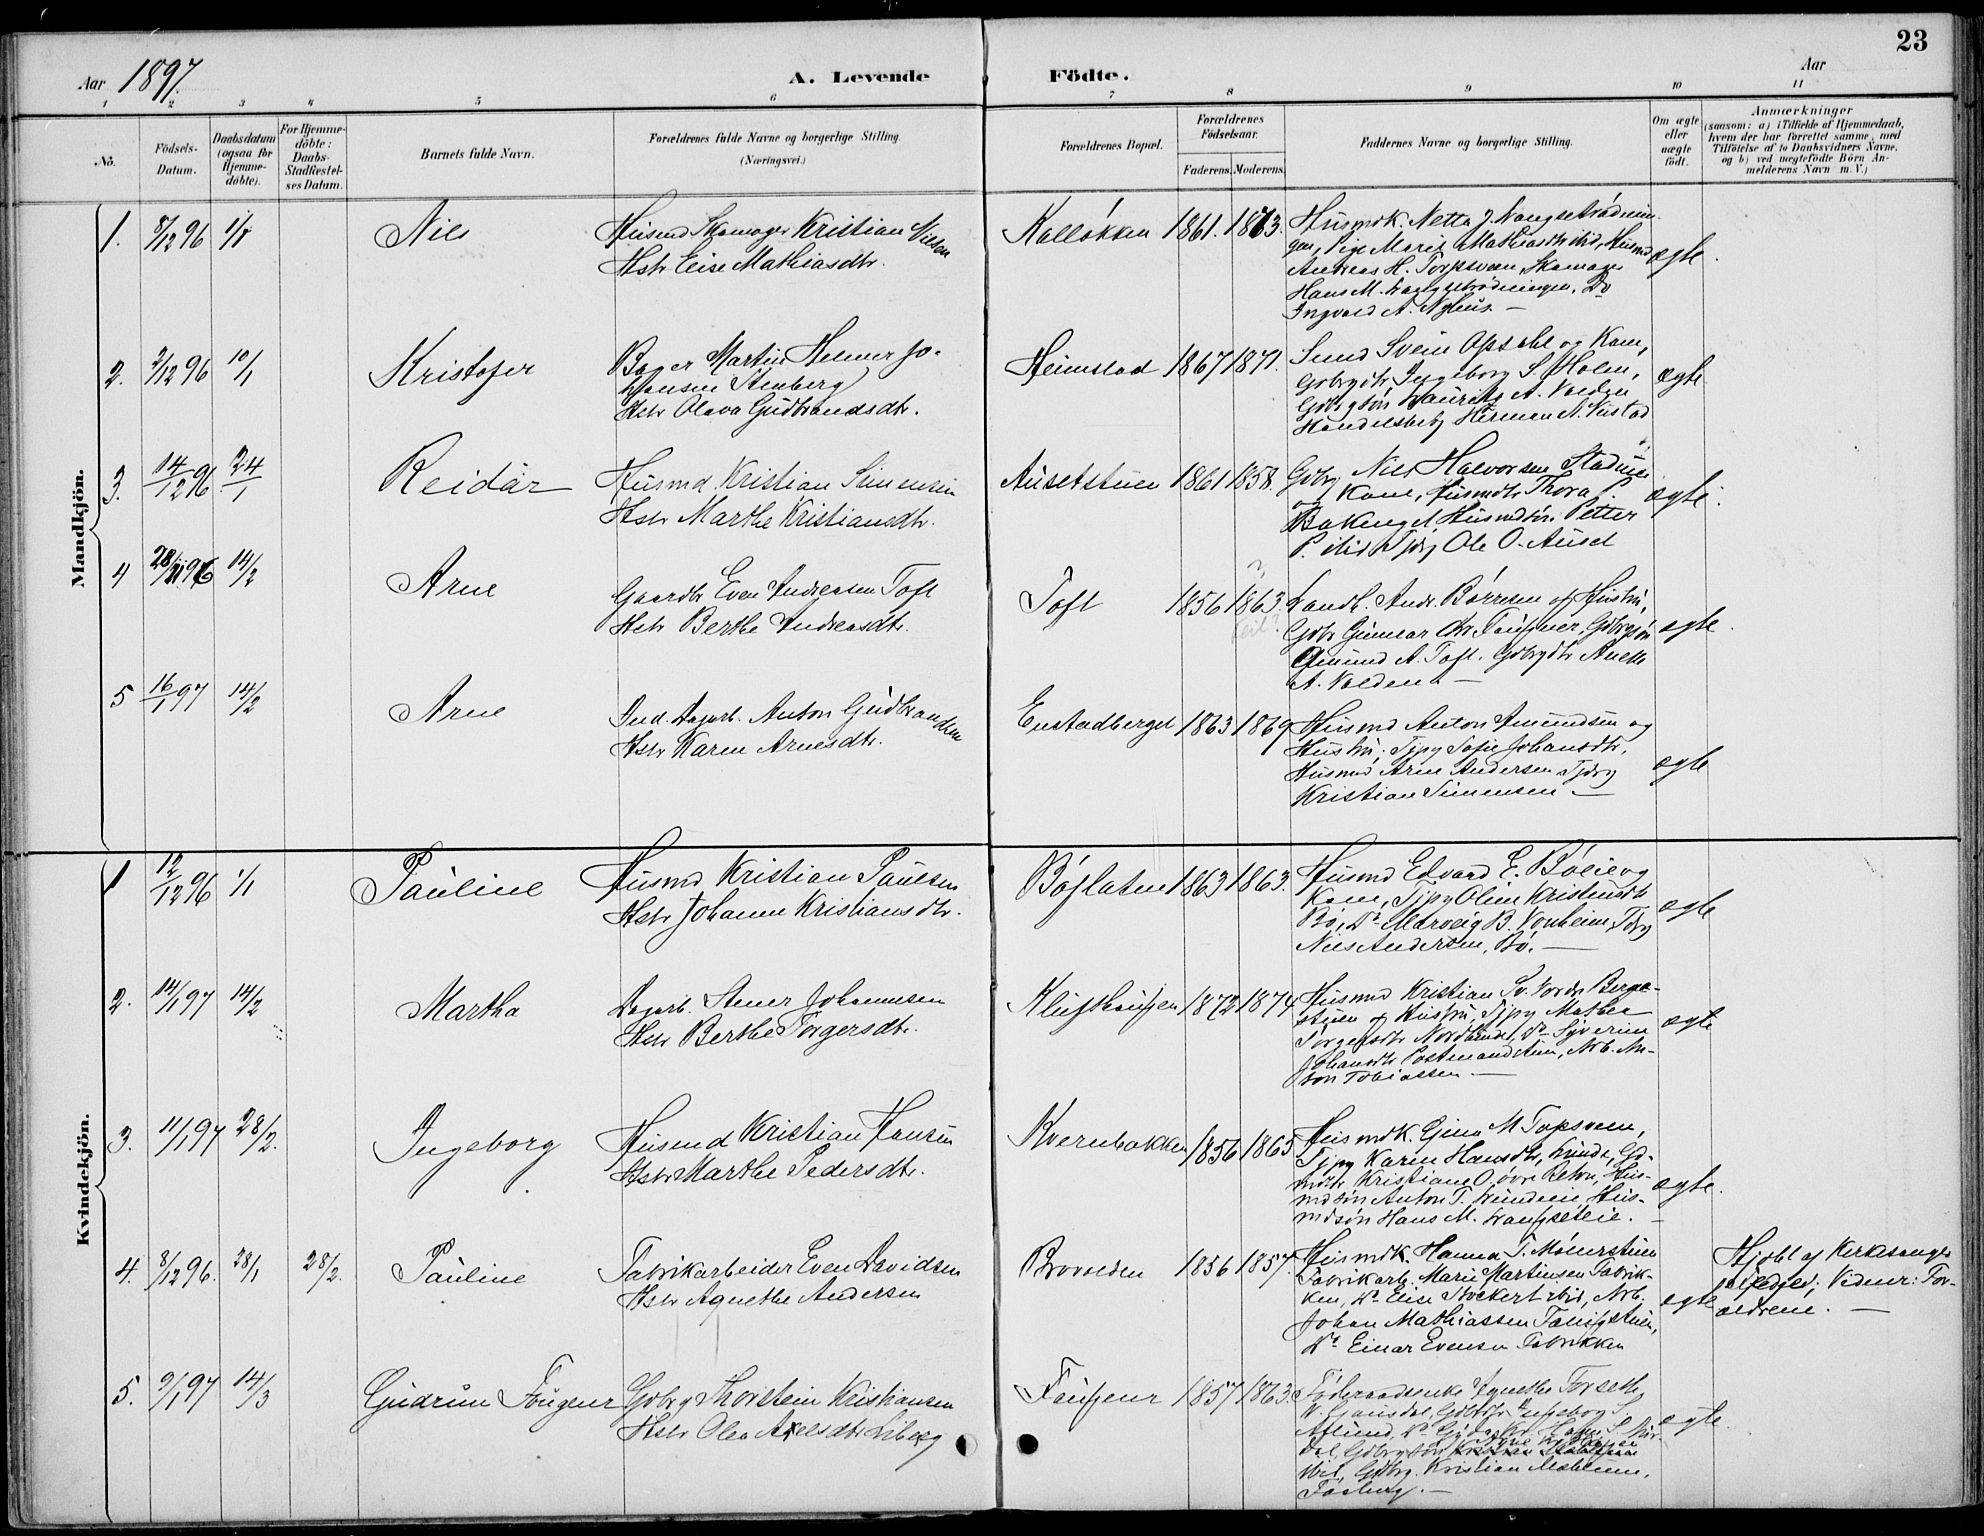 23
Aar 1897.
A. Levende Födte.
Aar
1 2 3 4 5 6 7 8 9 10 11
No.
Födsels-Datum.
Daabsdatum (ogsaa for Hjemme-döbte).
For Hjemme-döbte: Daabs-Stadfestel-ses Datum.
Barnets fulde Navn.
Forældrenes fulde Navne og borgerlige Stilling. (Næringsvei.)
Forældrenes Bopæl.
Forældrenes Födselsaar.
Faderens. Moderens.
Faddernes Navne og borgerlige Stilling.
Om ægte eller uægte födt.
Anmærkninger
(saasom: a) i Tilfælde af Hjemmedaab,
hvem der har forrettet samme, med
Tilföielse af to Daabsvidners Navne,
og b) ved uegtefödte Börn An-
melderens Navn m. V.)
Mandkjön.
1. 8/12 96 1/1 Nils
Husmd Skomager Kristian Nilsen
Hstr Elise Mathiasdtr.
Kalløkken 1861. 1863.
Husmdk. Netta J.
Pige Marie Mathiasdtr ibid, Husmd
Andreas H. Torpsveen, Skomager
Hans M. Do
Ingvald A. Nyhus. —
ægte.
2. 2/12 96 10/1 Kristofer
Bager Martin Helmer Jo-
hansen Stenberg
Hstr Olava Gudbrandsdtr.
Heimstad 1867 1871.
Smed Svein Opsahl og Kone,
Gbrgdtr Ingeborg S. Holen,
Gdbrgsön Lauritz A. Volden
Handelsbetj Herman N. Nustad
ægte
3. 14/12 96. 24/1 Reidar
Husmd Kristian Simensen
Hstr Marthe Kristiansdtr.
Ausetstuen 1861 1858.
Gdbrg Nils Halvorsen
og Kone, Husmdtr Thora P.
Bakengel, Husmdsön Petter
P. ibid, Tjdrg Ole O. Auset
ægte.
4 28/11 96 14/2 Arne
Gaardbr Even Andreasen Toft
Hstr Berthe Andreasdtr.
Toft 1856 1863.
?
feil?
Landh. Andr. Börresen og Hustru,
Gdbr Gunnar Chr. Faugner, Gdbrgsön
Amund A. Toft, Gdbrgdtr Anette
A. Volden. —
ægte.
5 16/1 97 14/2 Arne
Ind. Dagarb. Anton Gudbrandsen
Hstr Karen Arnesdtr.
Enstadberget 1863 1869
Husmd Anton Amundsen og
Hustru, Tjpg Sofie Johansdtr,
Husmd Arne Andersen, Tjdrg
Kristian Simensen —
ægte
Kvindekjön.
1 12/12 96 1/1 Pauline
Husmd Kristian Paulsen
Hstr Johanne Kristiansdtr.
Böflaten 1863 1863.
Husmd Edvard E. Böeie og
Kone, Tjpg Oline Kristensdtr
Bö, Do Marveig B. Vonheim, Tjdrg
Nils Andersen, Bö. —
ægte
2. 14/1 97 14/2 Martha
Dagarb. Stener Johannesen
Hstr Berthe Torgersdtr.
Klufthaugen 1872 1874
Husmd Kristian Sv. Nordre Berge-
stuen og Hustru, Tjpg Mathea
Torgersdtr Nordlunde, Do Syverine
Johansdtr Postmandstuen, Arb. An-
ton Tobiassen. —
ægte
3. 11/1 97 28/2. Ingeborg
Husmd Kristian Hansen
Hstr Marthe Pedersdtr.
Kvernbakken 1856 1865
Husmdk. Gina M. Topsveen,
Tjpg Karen Hansdtr, Lunde, Gd-
mdtr Kristiane O. övre Reton, Hus-
mdsön Anton T. Lundeeie, Hus-
mdsön Hans M. Haugseteie. —
ægte.
4. 8/12 96. 28/1 28/2. Pauline
Fabrikarbeider Even Davidsen
Hstr Agnethe Andersen
Brovolden 1856 1857.
Husmdk. Hanna T. Mönerstuen
Fabrikarb. Marie Martinsen Fabrik-
ken, Do Elise Stockert ibid, Arb.
Johan Mathiassen
Do Einar Evensen Fabrikken
ægte
Hjdbt af Kirkesanger
Vidner: For-
ældrene. —
5. 9/1 97 14/3 Gudrun Fougner
Gdbrg Thorstein Kristiansen
Hstr Olea Axelsdtr Liberg
Faugner 1857 1863.
Föderaadsenke Agnethe Forseth,
V. Gausdal, Gdbrdtr Ingeborg
Kristian
ibid, Gdbrg. Kristian Mæhlum,
Faaberg. —
ægte.